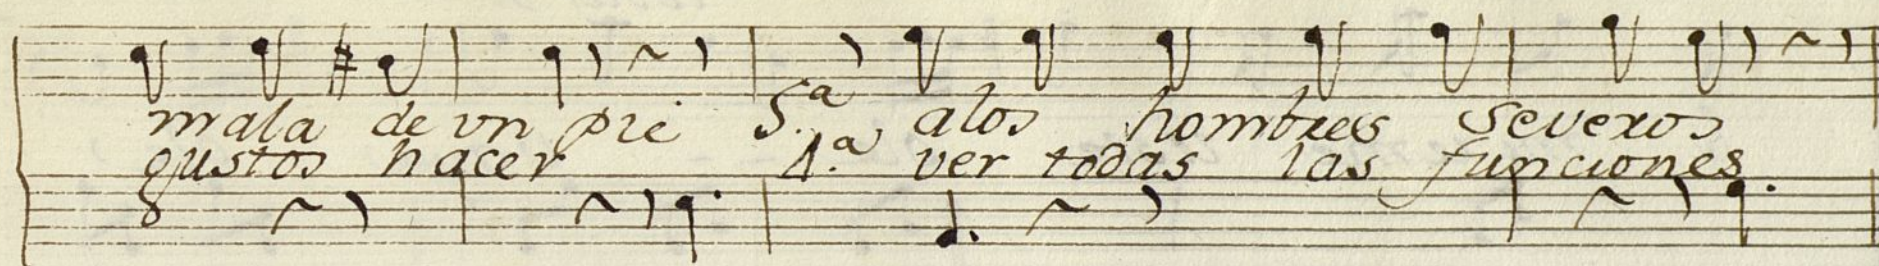 mala de vn pie S.ª alos hombres severos
gustos hacer 1.ª ver todas las funciones